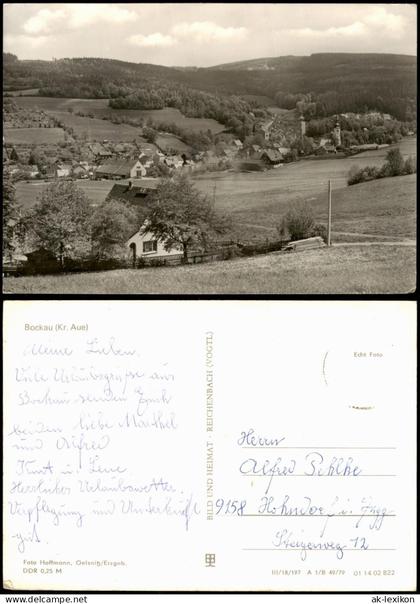 Bockau (Kr. Aue)
Meine Lieben.
Viele Urlaubsgrüße aus
Bockau senden Euch
beiden liebe
und Alfred
Kurt u. Lene
Herrliches Urlaubswetter
Verpflegung und Unterkunft
gut.
Foto Hoffmann, Oelsnitz/Erzgeb.
DDR 0,25 M
BILD UND HEIMAT · REICHENBACH (VOGTL)
Echt Foto
Herrn
Alfred
9158
Steigerweg 12
III/18/197 A 1/B 49/79 01 14 02 822
© ak-lexikon.com